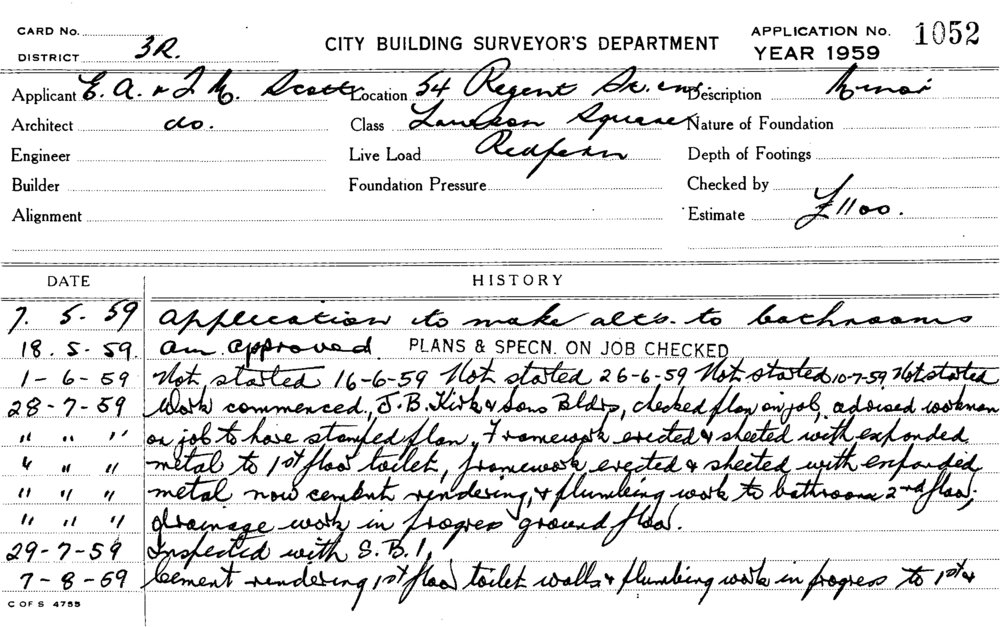 CARD No.
DISTRICT 3R.
CITY BUILDING SURVEYOR'S DEPARTMENT
APPLICATION No. 1052
YEAR 1959
Applicant E. A. & I. M. Scott Location 54 Regent St. cnr. Description Minor
Architect do. Class Lawson Square Nature of Foundation
Engineer Live Load Redfern Depth of Footings
Builder Foundation Pressure Checked by
Alignment Estimate £1100.
DATE HISTORY
7. 5. 59 Application to make alts. to bathrooms
18. 5. 59. Am. approved. PLANS & SPECN. ON JOB CHECKED
1-6-59 Not started 16-6-59 Not started 26-6-59 Not started 10-7-59 Not started
28-7-59 Work commenced, J.B. Kirk & Sons Bldrs, checked plan on job, advised workman
" " " on job to have stamped plan, Framework erected & sheeted with expanded
" " " metal to 1st floor toilet, framework erected & sheeted with expanded
" " " metal now cement rendering, & plumbing work to bathroom 2nd floor,
" " " drainage work in progress ground floor.
29-7-59 Inspected with S.B.I,
7-8-59 Cement rendering 1st floor toilet walls & plumbing work in progress to 1st &
C OF S 4755